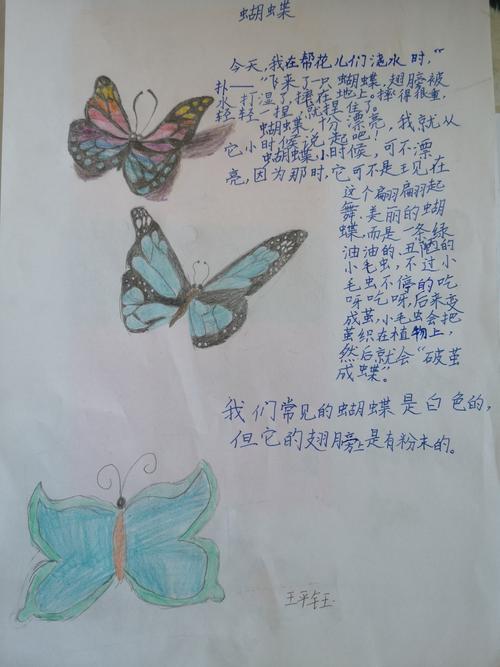 蝴蝶
今天,我在帮花儿们浇水时,“
扑——”飞来了一只蝴蝶,翅膀被
水打湿了,摔在地上。摔得很重,
轻轻一捏,就捏住了。
蝴蝶十分漂亮,我就从
它小时候说起吧!
蝴蝶小时候,可不漂
亮,因为那时,它可不是现在
这个翩翩起
舞、美丽的蝴
蝶,而是一条绿
油油的、丑陋的
小毛虫,不过小
毛虫不停的吃
呀吃呀,后来变
成茧,小毛虫会把
茧织在植物上,
然后就会“破茧
成蝶”。
我们常见的蝴蝶是白色的,
但它的翅膀上是有粉末的。
王平钰